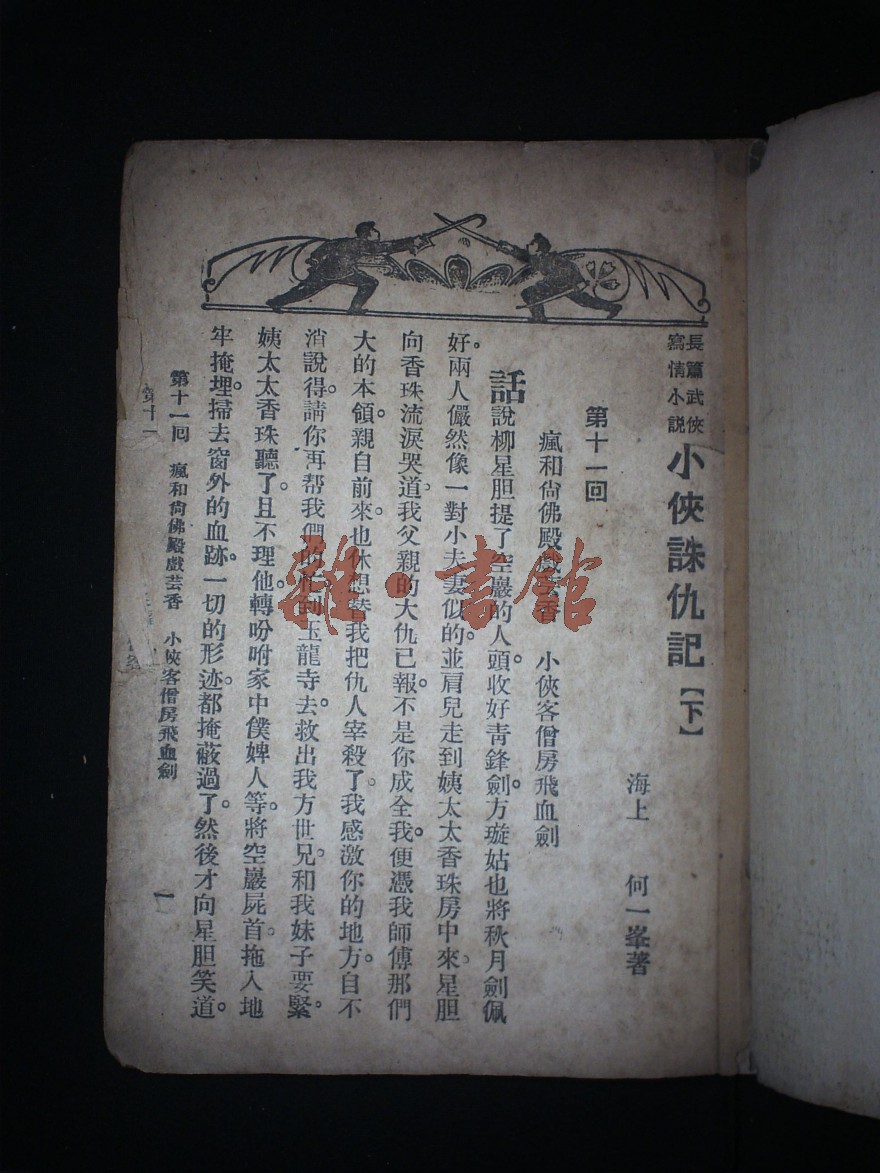 長篇武俠
寫情小說
小俠誅仇記【下】
海上 何一峯著
第十一回
瘋和尙佛殿戲芸香 小俠客僧房飛血劍
話說柳星胆提了空巖的人頭。收好靑鋒劍。方璇姑也將秋月劍佩
好。兩人儼然像一對小夫妻似的。並肩兒走到姨太太香珠房中來。星胆
向香珠流淚哭道。我父親的大仇已報。不是你成全我。便憑我師傅那們
大的本領。親自前來。也休想替我把仇人宰殺了。我感激你的地方。自不
消說得。請你再帮我們的忙。到玉龍寺去。救出我方世兄。和我妹子要緊。
姨太太香珠聽了。且不理他。轉吩咐家中僕婢人等。將空巖屍首。拖入地
牢掩埋。掃去窗外的血跡。一切的形迹。都掩蔽過了。然後才向星胆笑道。
第十一回 瘋和尙佛殿戲芸香 小俠客僧房飛血劍
一
第十一
雜·書館